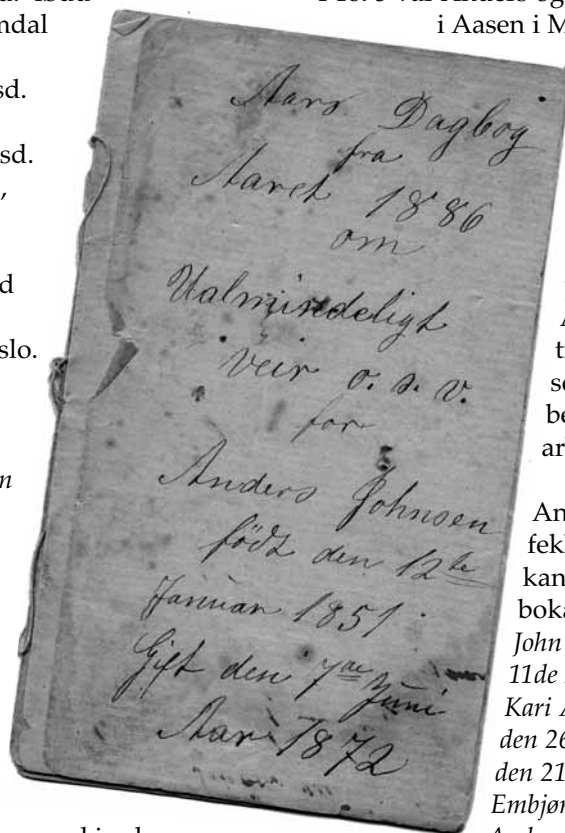 mdal
sd.
sd.
d
slo.
n
i Aasen i M
Aars Dagbog
fra
Aaret 1886
om
Ualmindeligt
veir o. s. v.
for
Anders Johnsen
födt den 12te
Januar 1851
Gift den 7de Juni
Aar 1872
A
ti
se
be
ar
An
fekk
kan
boka
John
11de
Kari A
den 26
den 21
Embjør